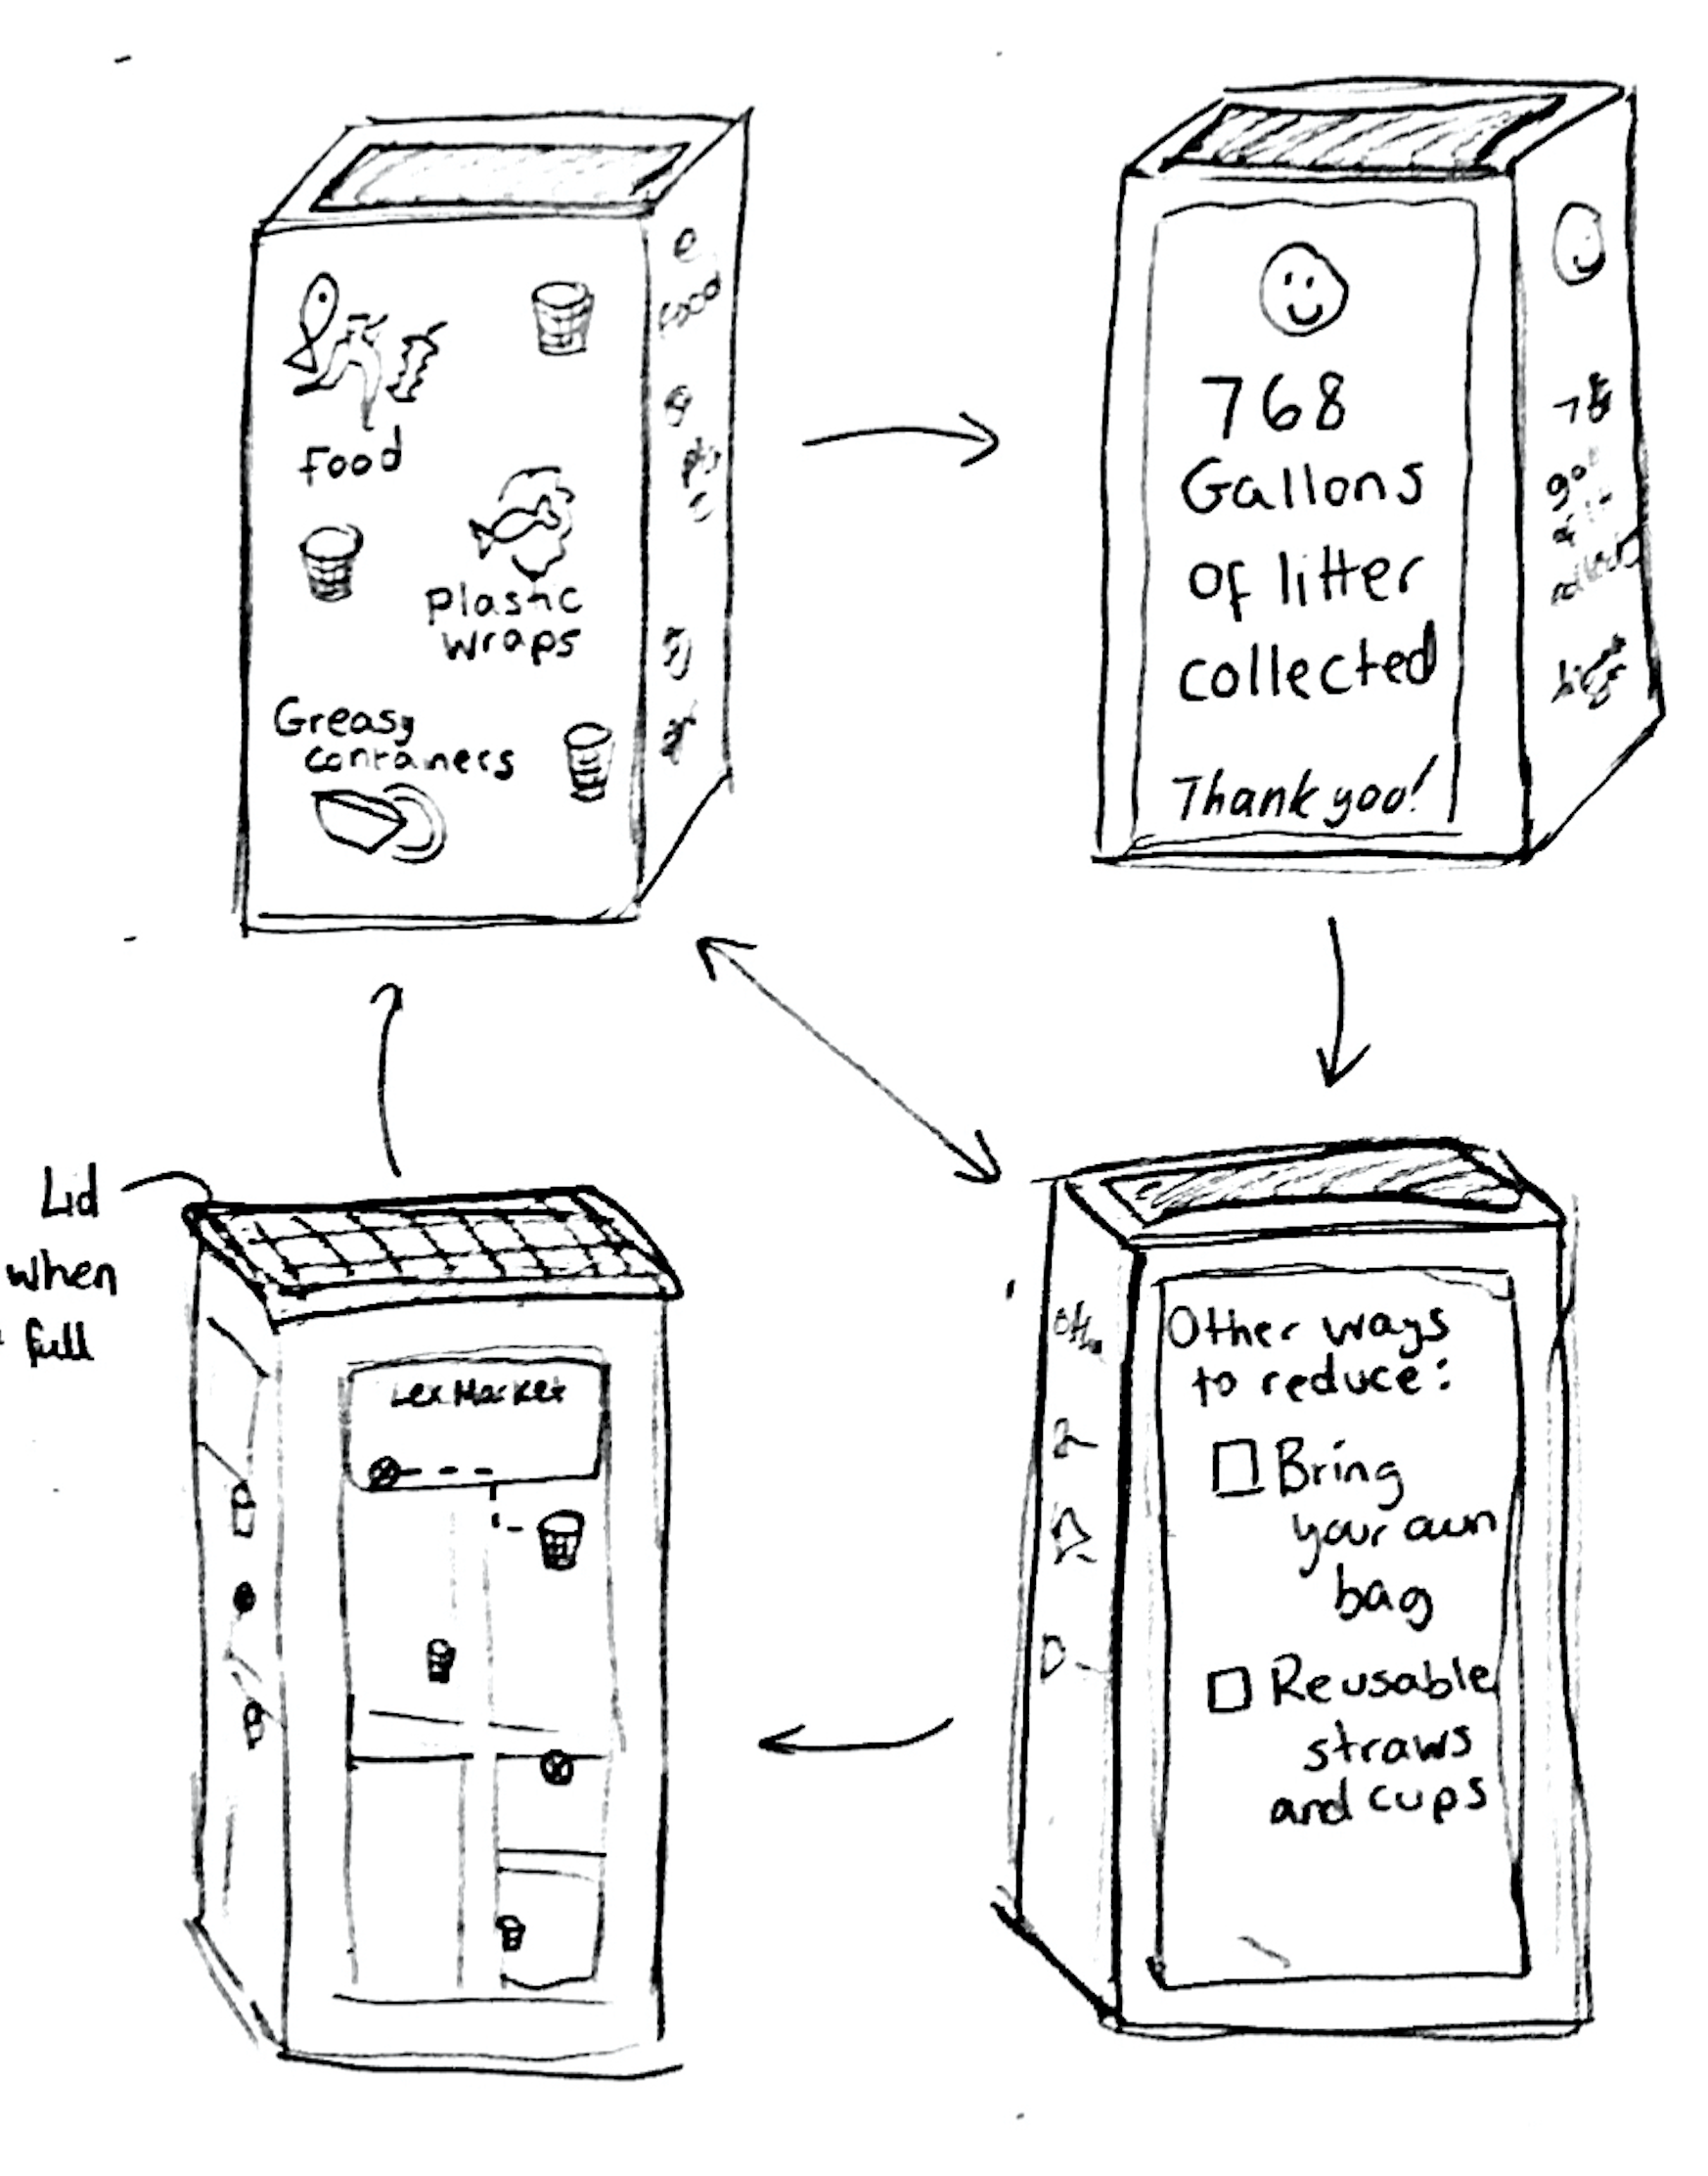 food
Plastic
wraps
Greasy
containers
food
768
Gallons
of litter
collected
Thank you!
Lid
when
full
Lex Market
Other ways
to reduce:
Bring
your own
bag
Reusable
straws
and cups